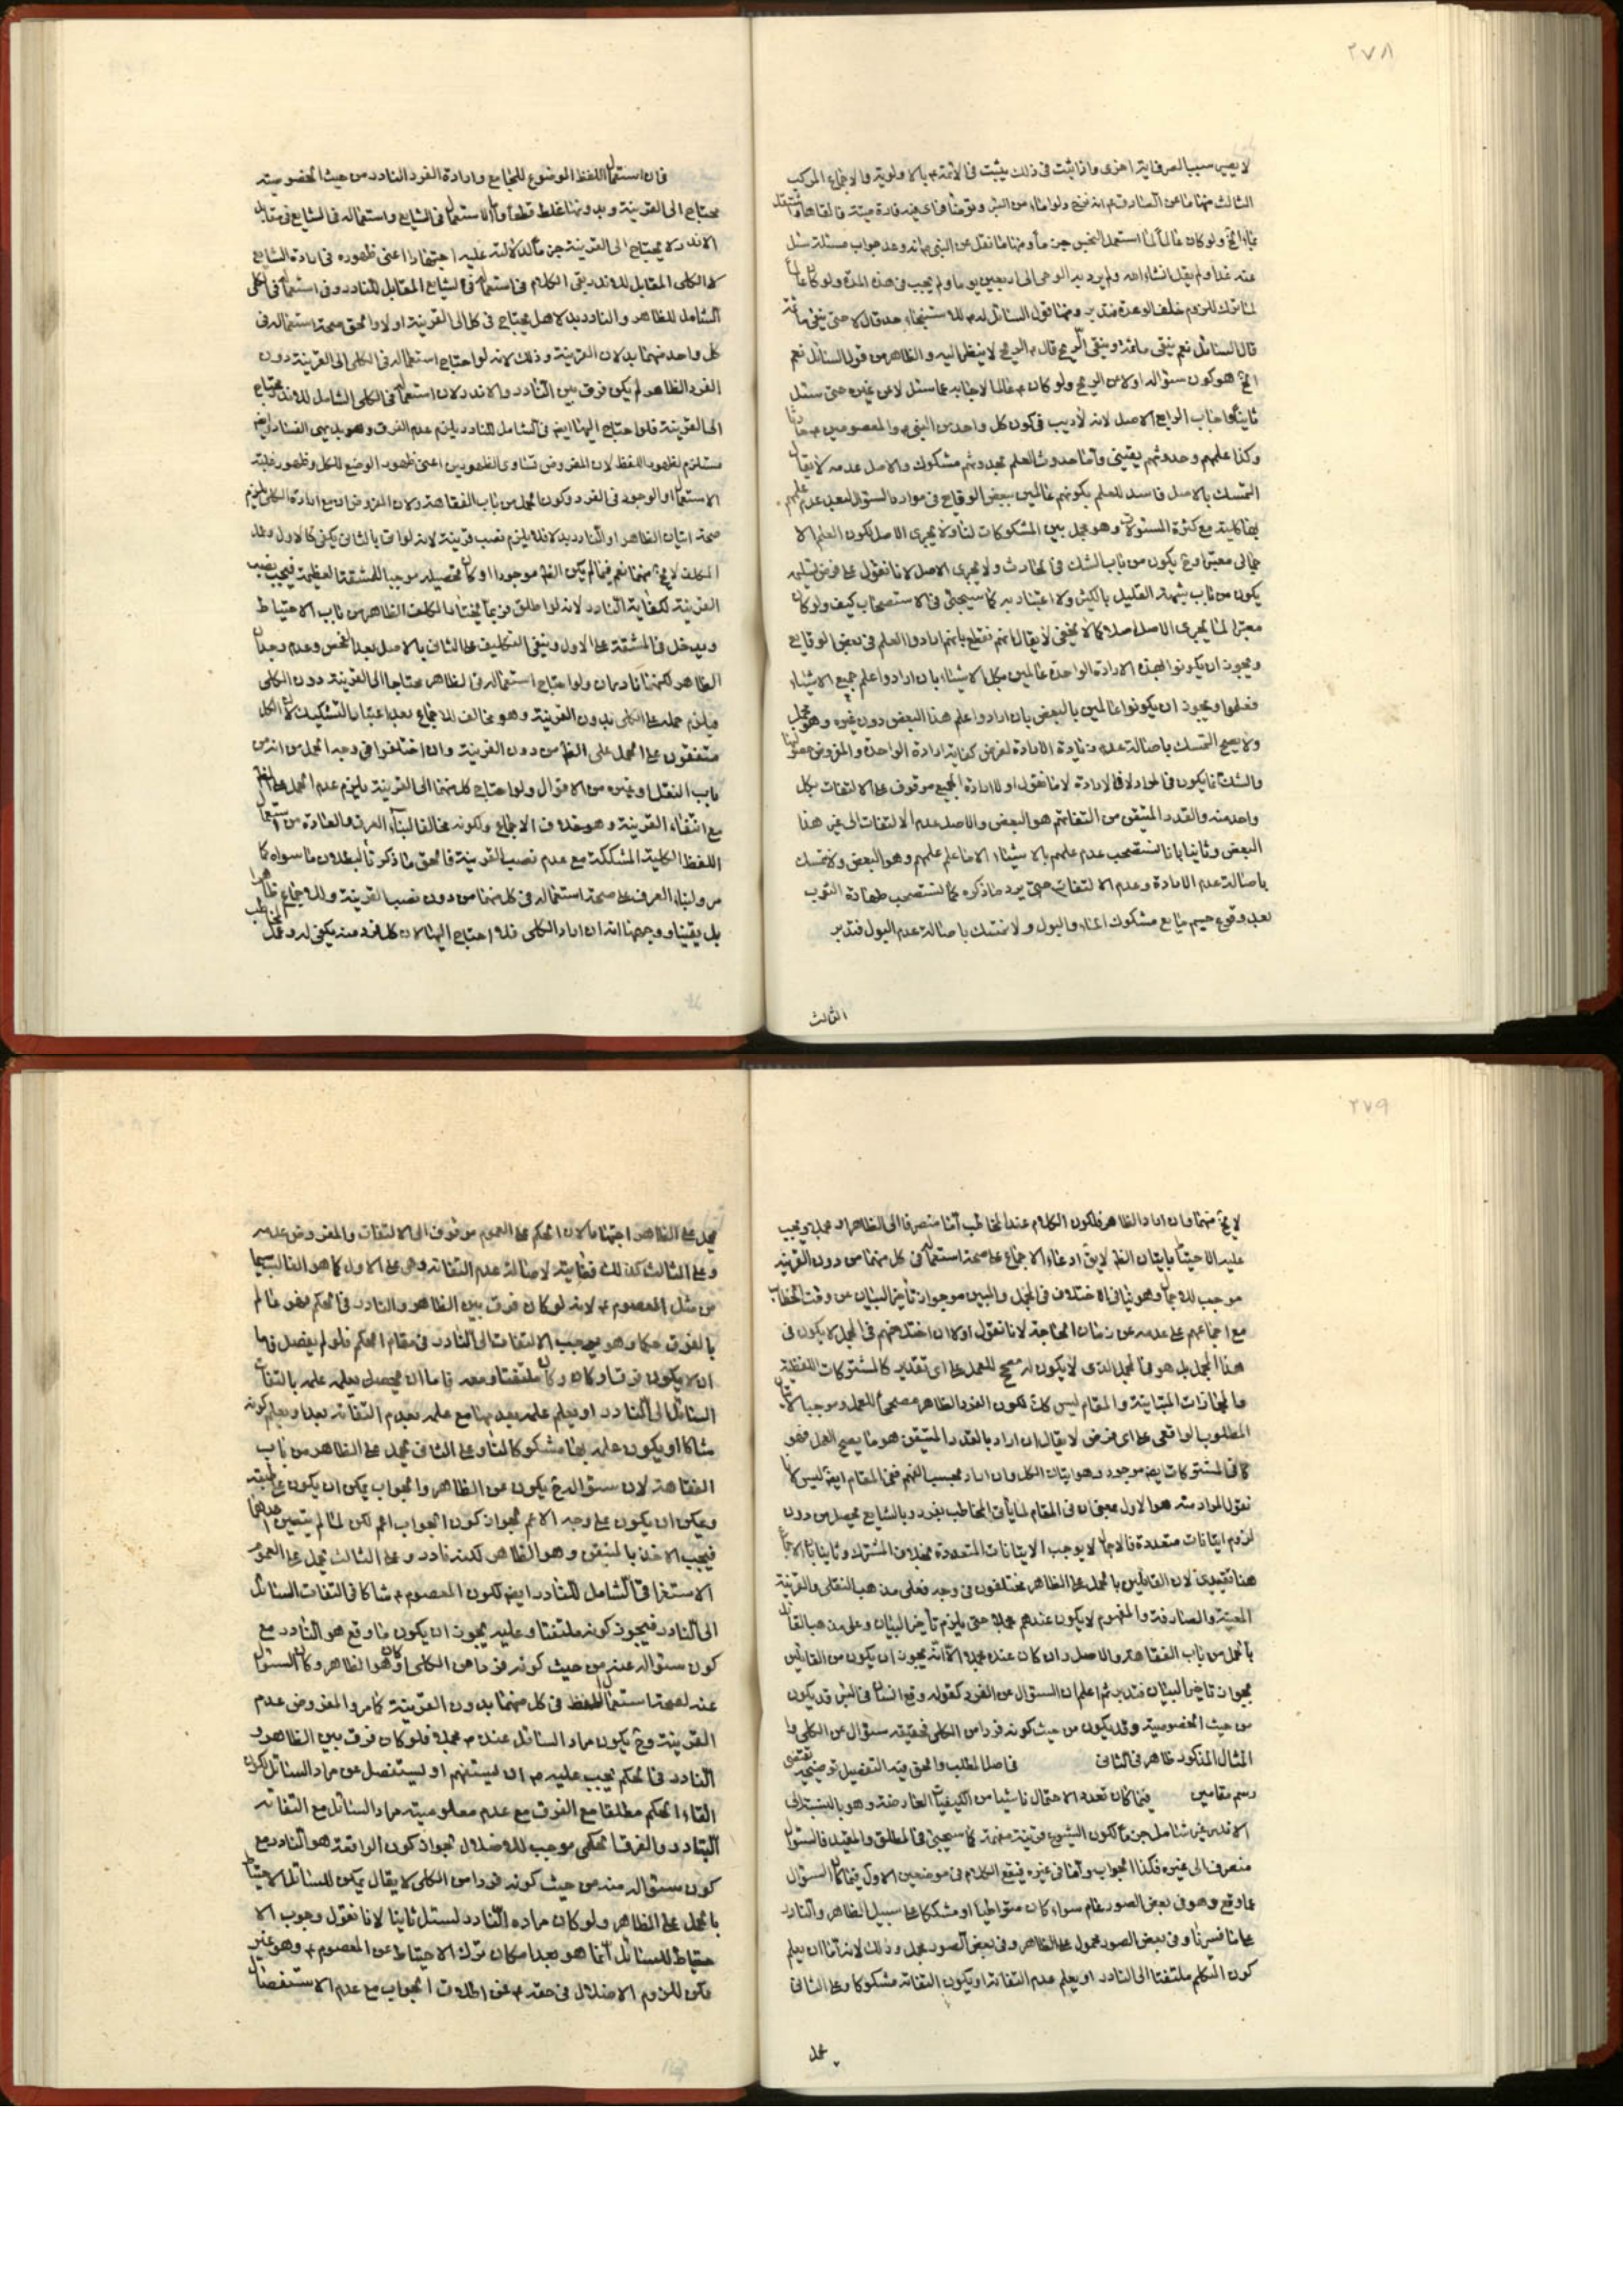 ٢٧٨
لا يصير سببا لصرف اية اخرى واذا ثبت فى ذلك يثبت فى الائمة بالاولوية والاجماع المركب
عنه غدا ولم يقل انشاء الله ولم يرد به الوحى الى اربعين يوما ولم يجب فى هذه المدة ولو كان عالما
قال السائل نعم ينقى ما ثمة ويبقى الريح قال الريح لا ينظر اليه والظاهر من قول السائل نعم
الخ هو كون سئواله اولا عن الريح ولو كان عالما لاجابه عما سئل لا عن غيره حتى سئل
وكذا علمهم وحدوثهم يقينى وأما حدوث العلم بحدوثهم مشكوك والاصل عدمه لا يقال
التمسك بالاصل فاسد للعلم بكونهم عالمين ببعض الوقايع فى موارد السئوال
يكون من باب شبهة القليل بالكثير ولا اعتناء به كما سيجئى فى الاستصحاب كيف ولو كان
معتبرا لما يجرى الاصل اصلا كما لا يخفى لا يقال انهم نقطع بانهم ارادوا العلم فى بعض الوقايع
ويجوز ان يكونوا بهذه الارادة الواحدة عالمين بكل الاشياء بان ارادوا علم جميع الاشياء
فعلموا ويجوز ان يكونوا عالمين بالبعض بان ارادوا علم هذا البعض دون غيره وهو مجمل
ولا يصح التمسك باصالة عدم زيادة الارادة لفرض كفاية ارادة الواحدة والمفروض
والشك انما يكون فى المراد لا فى الارادة لانا نقول اولا ارادة الجميع موقوف على الالتفات بكل
واحد منه والقدر المتيقن من التفاتهم هو البعض والاصل عدم الالتفات الى غير هذا
البعض وثانيا بانا نستصحب عدم علمهم بالاشياء الا ما علم علمهم وهو البعض ولا نتمسك
باصالة عدم الارادة وعدم الالتفات حتى يرد ما ذكره كما نستصحب طهارة الثوب
بعد وقوع جسم مايع مشكوك الماء والبول ولا نتمسك باصالة عدم البول فتدبر
الثالث
فان استعمال اللفظ الموضوع للجامع وارادة الفرد النادر من حيث الخصوصية
يحتاج الى القرينة وبدونها غلط قطعا واما الاستعمال فى الشايع واستعماله فى الشايع فى مقابل
الاندر لا يحتاج الى القرينة جزما لدلالته عليه اجتهادا اعنى ظهوره فى ارادة الشايع
لا الكلى المقابل للاندر بقى الكلام فى استعماله فى الشايع المقابل للنادر وفى استعماله فى الكلى
الشامل للظاهر والنادر بدلا هل يحتاج فى كل الى القرينة اولا والحق صحة استعماله فى
كل واحد منهما بدون القرينة وذلك لانه لو احتاج استعماله فى الكلى الى القرينة دون
الفرد الظاهر لم يكن فرق بين النادر والاندر لان استعماله فى الكلى الشامل للاندر يحتاج
الى القرينة فلو احتاج اليها ايضا فى الشامل للنادر يلزم عدم الفرق وهو بديهى الفساد
الاستعمال او الوجود فى الفرد وكون الحمل من باب الفقاهة ولان المفروض ان مع ارادة الكلى يلزم
صحة اتيان الظاهر او النادر بدلا فلا يلزم نصب قرينة لانه لو اتى بالثانى يكفى كالاول
القرينة لكفاية النادر لانه لو اطلق فربما يختار المكلف الظاهر من باب الاحتياط
ويدخل فى المشقة على الاول وينفى التكليف على الثانى بالاصل بعد الفحص وعدم وجدان
الظاهر لكنهما نادران ولو احتاج استعماله فى الظاهر محتاجا الى القرينة دون الكلى
فيلزم حمله على الكلى بدون القرينة وهو مخالف للاجماع بعد اعتبار التشكيك لان الكل
متفقون على الحمل على الظاهر من دون القرينة وان اختلفوا فى وجه الحمل من انه من
باب النقل او غيره من الاقوال ولو احتاج كل منهما الى القرينة يلزم عدم الحمل على الظاهر
مع انتفاء القرينة وهو خلاف الاجماع ولكونه مخالفا لبناء العرف والعادة من استعمال
اللفظ الكلية المشككة مع عدم نصب القرينة فالحق ما ذكرنا لبطلان ما سواه كما
مر ولبناء العرف على صحة استعماله فى كل منهما من دون نصب القرينة وللاجماع ظاهرا
بل يقينا ووجهها انه ان اراد الكلى فلا احتاج اليها لان كل فرد منه يكفى له وعمل المخاطب
٢٧٩
لا يخ منهما وان اراد الظاهر فلكون الكلام عند المخاطب اما منصرفا الى الظاهر او مجملا ويجب
عليه الاحتياط باتيان الظاهر لا يق ادعاء الاجماع على صحة استعماله فى كل منهما من دون القرينة
موجب للاجمال وهو ينافى اختلاف فى المجمل والمبين من جواز تأخير البيان عن وقت الخطاب
مع اجماعهم على عدمه عن زمان الحاجة لانا نقول اولا ان اختلافهم فى المجمل لا يكون فى
هذا المجمل بل هو فى المجمل الذى لا يكون له مصحح للعمل على اى تقدير كالمشتركات اللفظية
والمجازات المتباينة والمقام ليس كك لكون الفرد الظاهر مصححا للعمل وموجبا لاتيان
المطلوب الواقعى على اى فرض لا يقال ان اراد بالقدر المتيقن هو ما يصح العمل فهو
فى المشتركات ايضا موجود وهو اتيان الكل وان اراد بحسب الفهم ففى المقام ايضا ليس لانا
نقول المراد منه هو الاول
لزوم اتيانات متعددة فالاجمال لا يوجب الاتيانات المتعددة بخلاف المشترك وثانيا بان الاجماع
هنا تقييدى لان القائلين بالحمل على الظاهر مختلفون فى وجه فعلى مذهب النقلى والقرينة
المعينة والصارفة والمفهوم لا يكون عندهم مجملا حتى يلزم تأخير البيان وعلى مذهب القائل
بالحمل من باب الفقاهة والاصل وان كان عنده مجملا الا انه يجوز ان يكون من القائلين
بجواز تاخير البيان فتدبر ثم اعلم ان السئوال عن الفرد كقوله وقع انسان فى البئر قد يكون
من حيث الخصوصية وقد يكون من حيث كونه فردا من الكلى فحقيقته سئوال عن الكلى و
المثال المذكور ظاهر فى الثانى فاصل المطلب والحق فيه التفصيل توضيحه يقتضى
رسم مقامين فيما كان تعدد الاحتمال ناشيا من الكيفيات العارضة وهو بالنسبة الى
الاندر غير شامل جزما لكون الشيوع قرينة مفهمة كما سيجئى فى المطلق والمقيد فالسئوال
منصرف الى غيره فكذا الجواب وأما فى غيره فيقع الكلام فى موضعين الاول فيما كان السئوال
عما وقع وهو فى بعض الصور عام سواء كان متواطيا او مشككا على سبيل الظاهر والنادر
على ما فسرنا وفى بعض الصور محمول على الظاهر وفى بعض الصور مجمل وذلك لانه اما ان يعلم
كون المتكلم ملتفتا الى النادر او يعلم عدم التفاته او يكون التفاته مشكوكا وعلى الثانى
يحمل
يحمل على الظاهر اجتهادا لان الحكم على العموم موقوف الى الالتفات والمفروض عدمه
وعلى الثالث كذلك فقاهة لاصالة عدم التفاته وهى على الاول كما هو الغالب سيما
من مثل المعصوم لانه لو كان فرق بين الظاهر والنادر فى الحكم فهو عالم
بالفرق حكما وهو يوجب الالتفات الى النادر فى مقام الحكم فلو لم يفصل فاما
ان لا يكون فرق او كان وكان ملتفتا ومعه فاما ان يحصل يعلم علمه بالتفات
السائل الى النادر او يعلم علمه بعدمها مع علمه بعدم التفاته بعدا ويعلم كونه
شاكا او يكون علمه بها مشكوكا لنا وعلى الثانى يحمل على الظاهر من باب
الفقاهة لان سئواله ح يكون عن الظاهر والجواب يمكن ان يكون على طبقه
ويمكن ان يكون على وجه الاعم لجواز كون الجواب اعم لكن لما لم يتعين احدهما
فيجب الاخذ بالمتيقن وهو الظاهر لكنه نادر وعلى الثالث يحمل على العموم
الاستغراقى الشامل للنادر ايضا لكون المعصوم شاكا فى التفات السائل
الى النادر فيجوز كونه ملتفتا وعليه يجوز ان يكون ما وقع هو النادر مع
كون سئواله عنه من حيث كونه فردا من الكلى او كان هو الظاهر وكان السئوال
عنه لصحة استعمال اللفظ فى كل منهما بدون القرينة كما مر والمفروض عدم
القرينة وح يكون مراد السائل عنده مجملا فلو كان فرق بين الظاهر و
النادر فى الحكم يجب عليه ان يستفهم او يستفصل عن مراد السائل لكون
القاء الحكم مطلقا مع الفرق مع عدم معلومية مراد السائل مع التفاته
النادر والفرق الحكمى موجب للاضلال لجواز كون الواقعة هو النادر مع
كون سئواله منه من حيث كونه فردا من الكلى لا يقال يمكن للسائل الاحتياط
بالحمل على الظاهر ولو كان مراده النادر لسئل ثانيا لانا نقول وجوب الا
حتياط للسائل انما هو بعد امكان ترك الاحتياط عن المعصوم وهو غير
ممكن للزوم الاضلال فى حقه عن اطلاق الجواب مع عدم الاستفصال